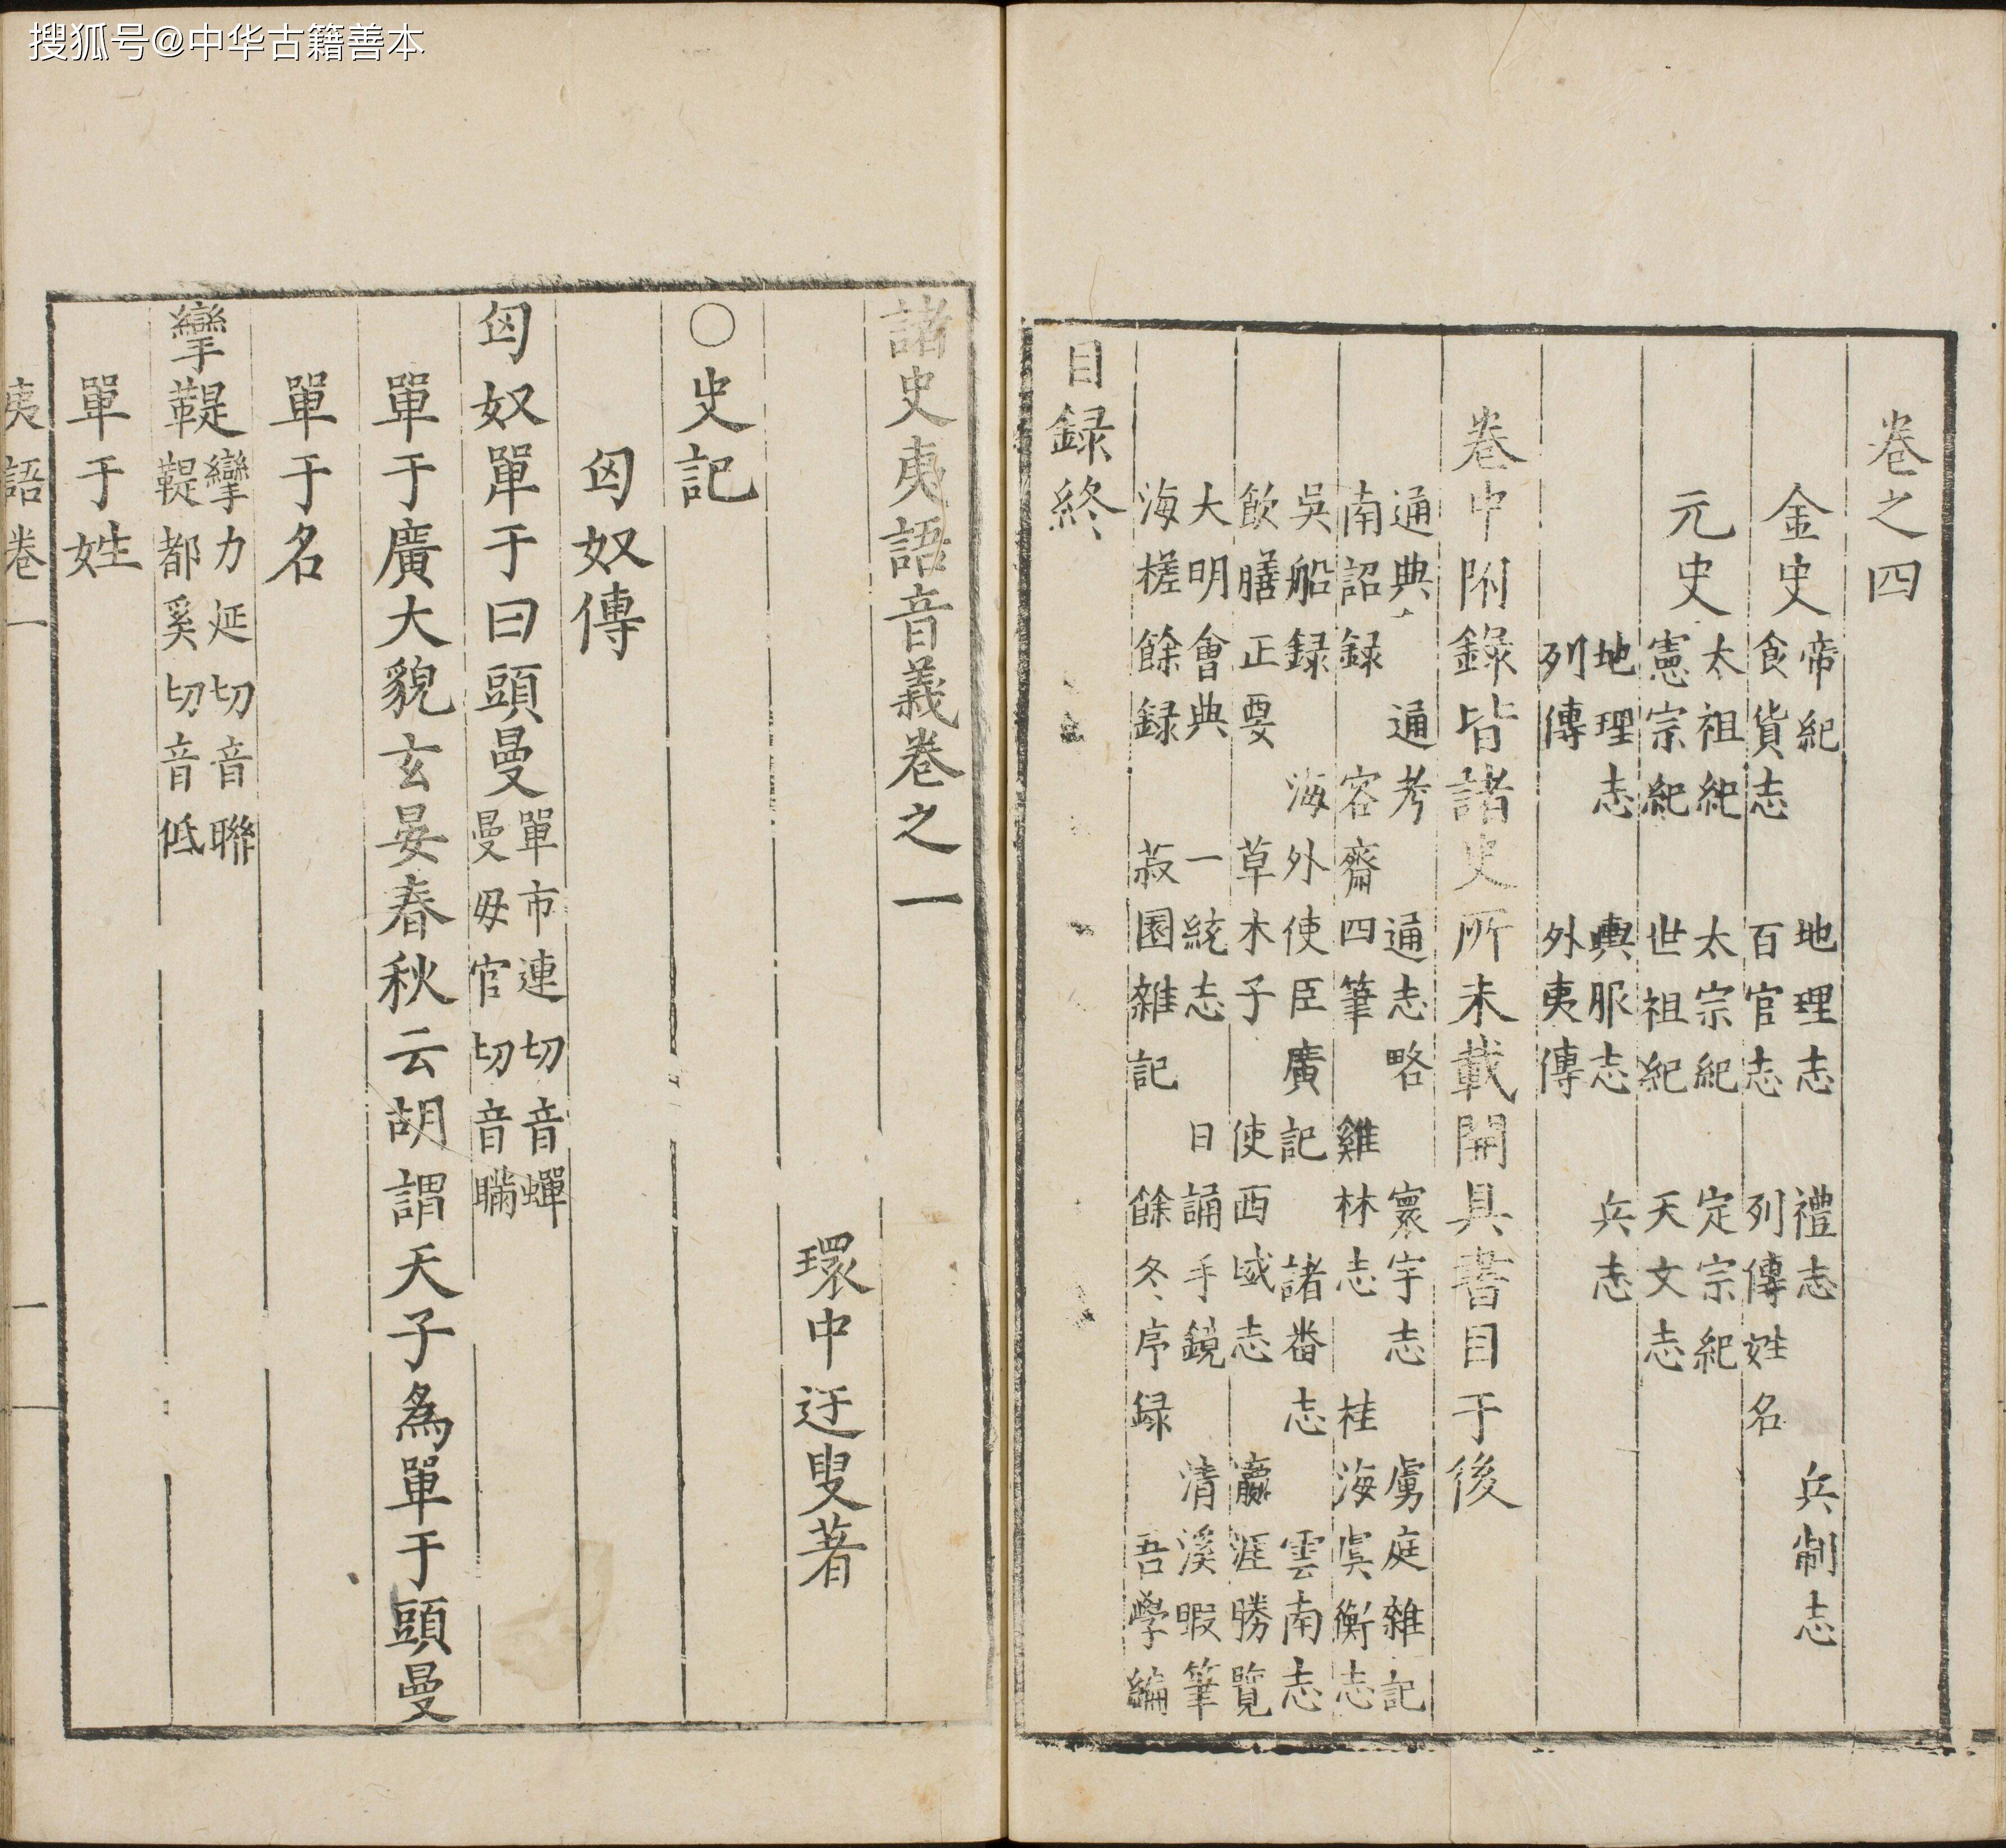 搜狐号@中华古籍善本
卷之四
金史
帝紀 地理志 禮志 兵制志
食貨志 百官志 列傳姓名
元史
太祖紀 太宗紀 定宗紀
憲宗紀 世祖紀 天文志
地理志 輿服志 兵志
列傳 外夷傳
卷中附錄皆諸史所未載開具書目于後
通典 通考 通志略 寰宇志 虜庭雜記
南詔録 容齋四筆 雞林志 桂海虞衡志
吳船録 海外使臣廣記 諸畨志 雲南志
飲膳正要 草木子 使西域志 瀛涯勝覽
大明會典 一統志 日誦手鏡 清溪暇筆
海槎餘録 菽園雜記 餘冬序録 吾學編
目録終
諸史夷語音義卷之一
環中迂叟著
○史記
匈奴傳
匈奴單于曰頭曼
單市連切音蟬
曼毋官切音瞞
單于廣大貌玄晏春秋云胡謂天子為單于頭曼
單于名
攣鞮
攣力延切音聯
鞮都奚切音低
單于姓
夷語卷一 一